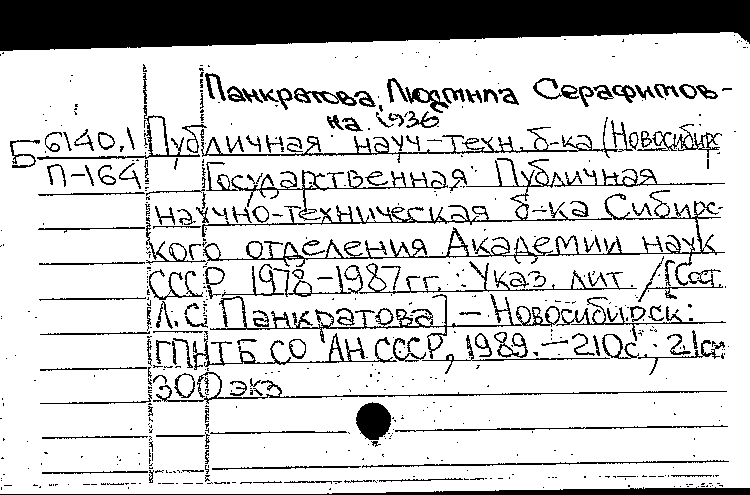 Панкратова, Людмила Серафимов-
на. 1936
Б 6140.1 Публичная науч.-техн. б-ка (Новосибирс
П-164 Государственная Публичная
научно-техническая б-ка Сибирс-
кого отделения Академии наук
СССР 1978-1987гг. : Указ. лит. / [Сост.
Л.С. Панкратова]. - Новосибирск:
ГПНТБ СО АН СССР, 1989. - 210с.; 21см
300 экз